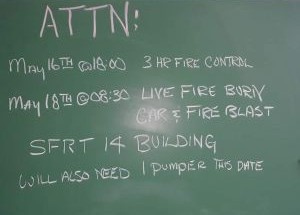 ATTN:
MAY 16TH @ 18:00 3 HR FIRE CONTROL
MAY 18TH @ 08:30 LIVE FIRE BURN
CAR & FIRE BLAST
SFRT 14 BUILDING
WILL ALSO NEED 1 PUMPER THIS DATE